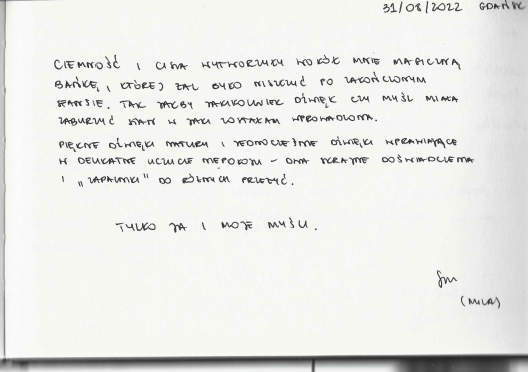 31/08/2022 GDAŃSK
CIEMNOŚĆ I CISZA WYTWORZYŁY WOKÓŁ MNIE MAGICZNĄ
BAŃKĘ, KTÓREJ ŻAL BYŁO NISZCZYĆ PO ZAKOŃCZONYM
SEANSIE. TAK JAKBY JAKIKOLWIEK DŹWIĘK CZY MYŚL MIAŁA
ZABURZYĆ STAN W JAKI ZOSTAŁAM WPROWADZONA.
PIĘKNE DŹWIĘKI NATURY I JEDNOCZEŚNIE DŹWIĘKI WPRAWIAJĄCE
W DELIKATNE UCZUCIE NIEPOKOJU – DWA SKRAJNE DOŚWIADCZENIA
I „ZAPALNIKI" DO RÓŻNYCH PRZEŻYĆ.
TYLKO JA I MOJE MYŚLI.
(MILA)